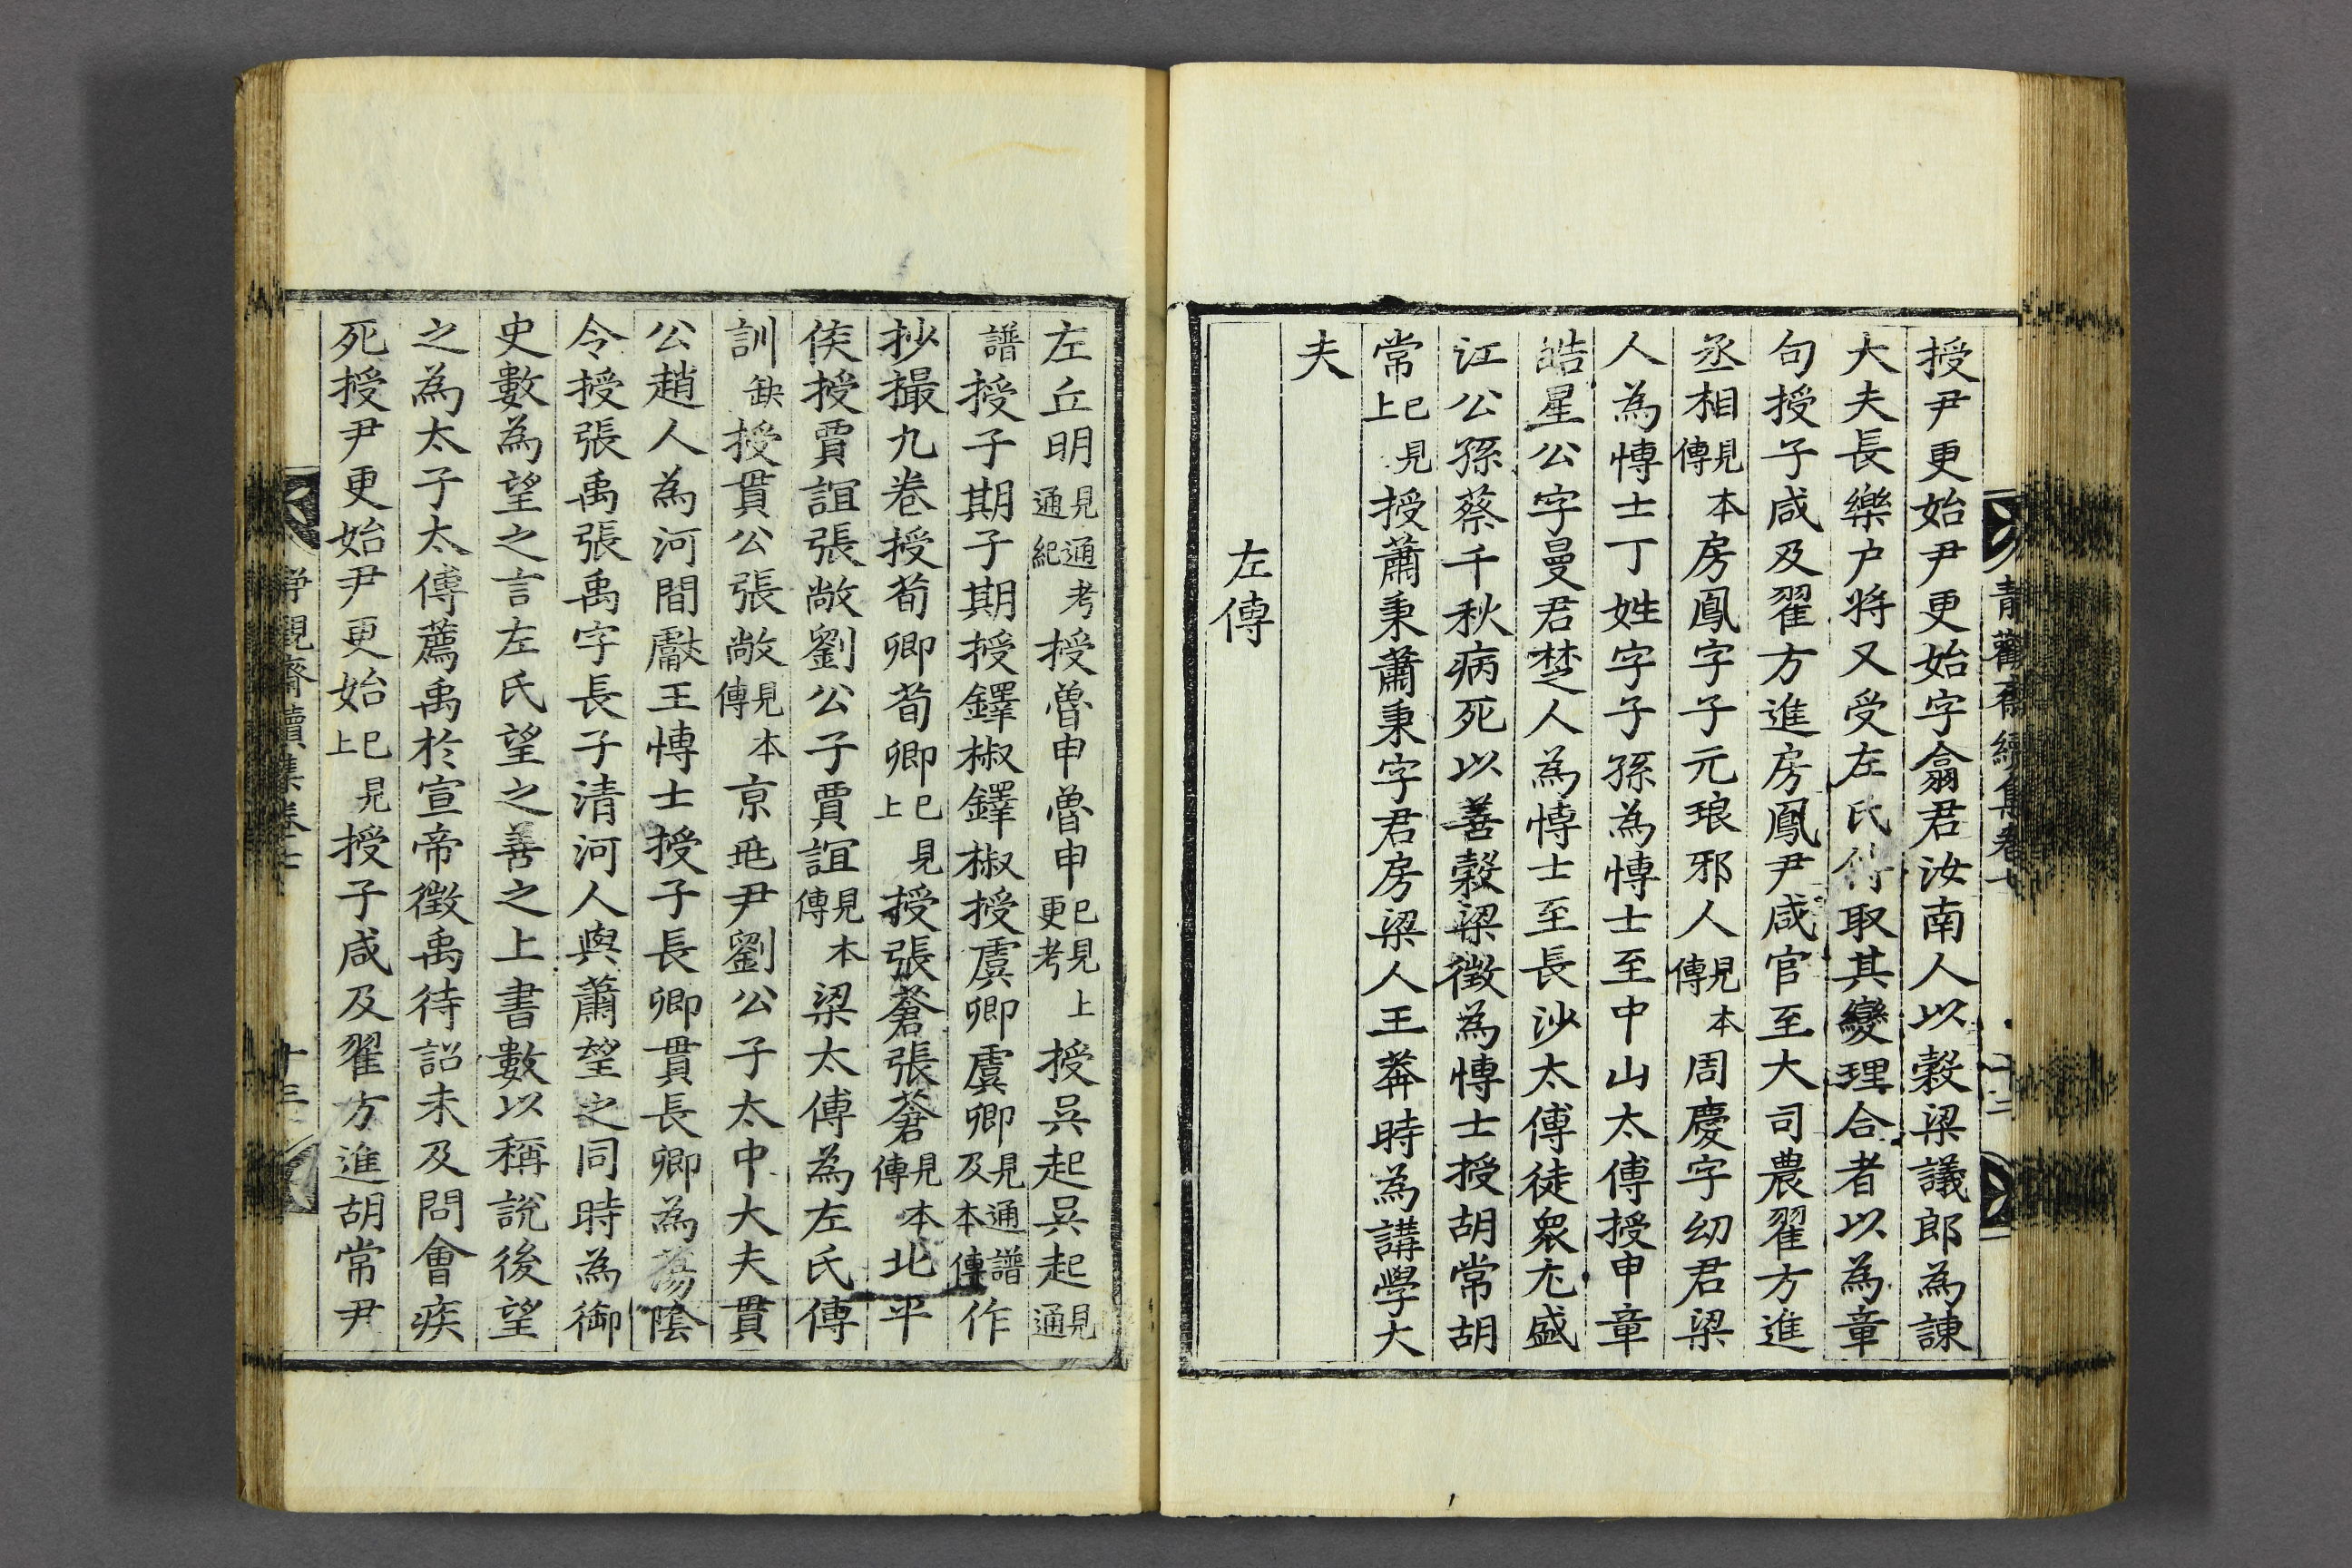 授尹更始尹更始字翕君汝南人以糓梁議郎為諫
大夫長樂户將又受左氏傳取其變理合者以為章
句授子咸及翟方進房鳳尹咸官至大司農翟方進
丞相見本傳房鳳字子元琅邪人見本傳周慶字幼君梁
人為愽士丁姓字子孫為愽士至中山太傅授申章
皓星公字曼君楚人為愽士至長沙太傅徒衆尤盛
江公孫蔡千秋病死以善糓梁徵為愽士授胡常胡
常已見上授蕭秉蕭秉字君房梁人王莽時為講學大
夫
左傳
左丘明見通考通紀授曾申曾申已見上更考授吳起吳起見通
譜授子期子期授鐸椒鐸椒授虞卿虞卿見通譜及本傳作
抄撮九卷授荀卿荀卿已見上授張蒼張蒼見本傳北平
侯授賈誼張敞劉公子賈誼見本傳梁太傅為左氏傳
訓缺授貫公張敞見本傳京兆尹劉公子太中大夫貫
公趙人為河間獻王愽士授子長卿貫長卿為蕩陰
令授張禹張禹字長子清河人與蕭望之同時為御
史數為望之言左氏望之善之上書數以稱說後望
之為太子太傅薦禹於宣帝徵禹待詔未及問會疾
死授尹更始尹更始已見上授子咸及翟方進胡常尹